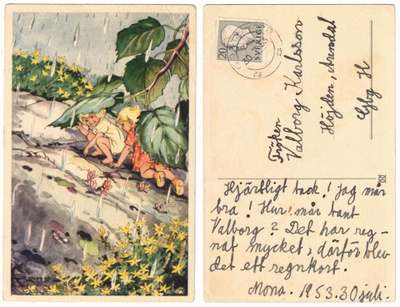 20
20
SVERIGE
Fröken
Valborg Karlsson
Höjden, Arendal
Gbg H
Hjärtligt tack! Jag mår
bra! Hur mår tant
Valborg? Det har reg-
nat mycket, därför blev
det ett regnkort.
Mona. 1953.30 juli.